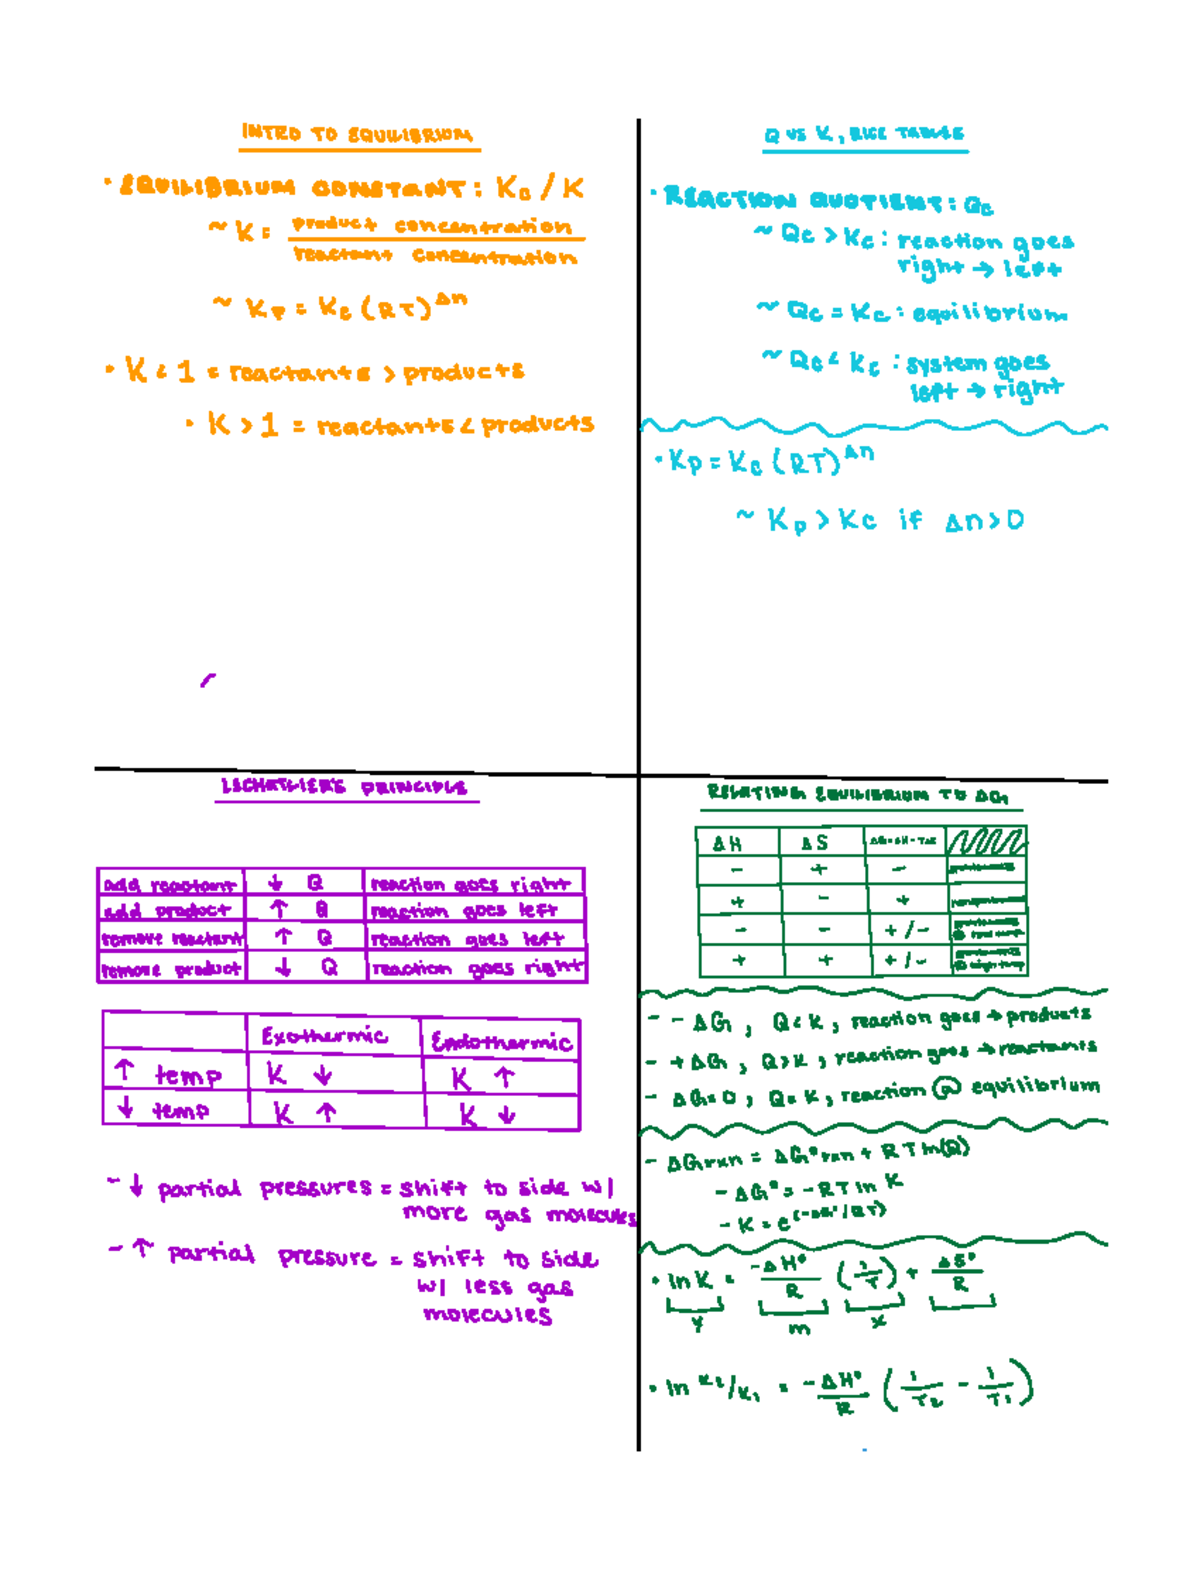 INTRO TO EQUILIBRIUM
• EQUILIBRIUM CONSTANT: Kc / K
~ K = product concentration / reactant concentration
~ Kp = Kc (RT)^Δn
• K < 1 = reactants > products
• K > 1 = reactants < products
Q VS K, RICE TABLES
• REACTION QUOTIENT: Qc
~ Qc > Kc : reaction goes
right → left
~ Qc = Kc : equilibrium
~ Qc < Kc : system goes
left → right
• Kp = Kc (RT)^Δn
~ Kp > Kc if Δn > 0
LECHATLIER'S PRINCIPLE
add reactant ↓ Q reaction goes right
add product ↑ Q reaction goes left
remove reactant ↑ Q reaction goes left
remove product ↓ Q reaction goes right
Exothermic Endothermic
↑ temp K ↓ K ↑
↓ temp K ↑ K ↓
- ↓ partial pressures = shift to side w/
more gas molecules
- ↑ partial pressure = shift to side
w/ less gas
molecules
RELATING EQUILIBRIUM TO ΔG
ΔH ΔS ΔG=ΔH-TΔS
- + -
+ - +
- - +/-
+ + +/-
- - ΔG, Q < K, reaction goes → products
- + ΔG, Q > K, reaction goes → reactants
- ΔG = 0, Q = K, reaction @ equilibrium
- ΔGrxn = ΔG°rxn + RT ln(Q)
- ΔG° = -RT ln K
- K = e^(-ΔG°/RT)
• ln K = -ΔH°/R (1/T) + ΔS°/R
y m x
• ln K2/K1 = -ΔH°/R (1/T2 - 1/T1)